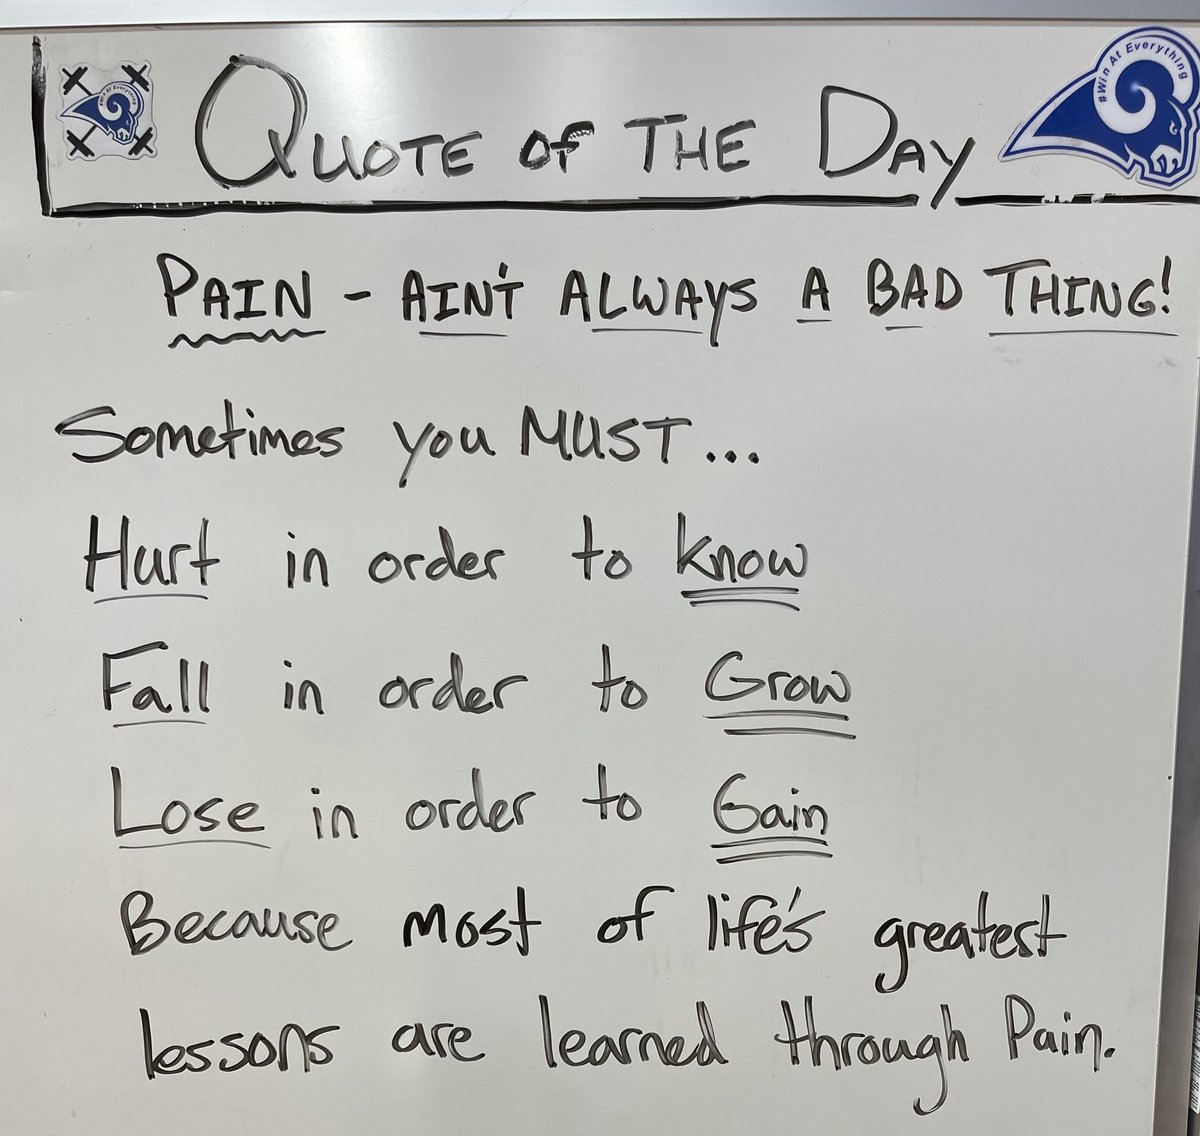 #Win At Everything
QUOTE of THE DAY
#Win At Everything
PAIN - AIN'T ALWAYS A BAD THING!
Sometimes you MUST...
Hurt in order to know
Fall in order to Grow
Lose in order to Gain
Because most of life's greatest
lessons are learned through Pain.